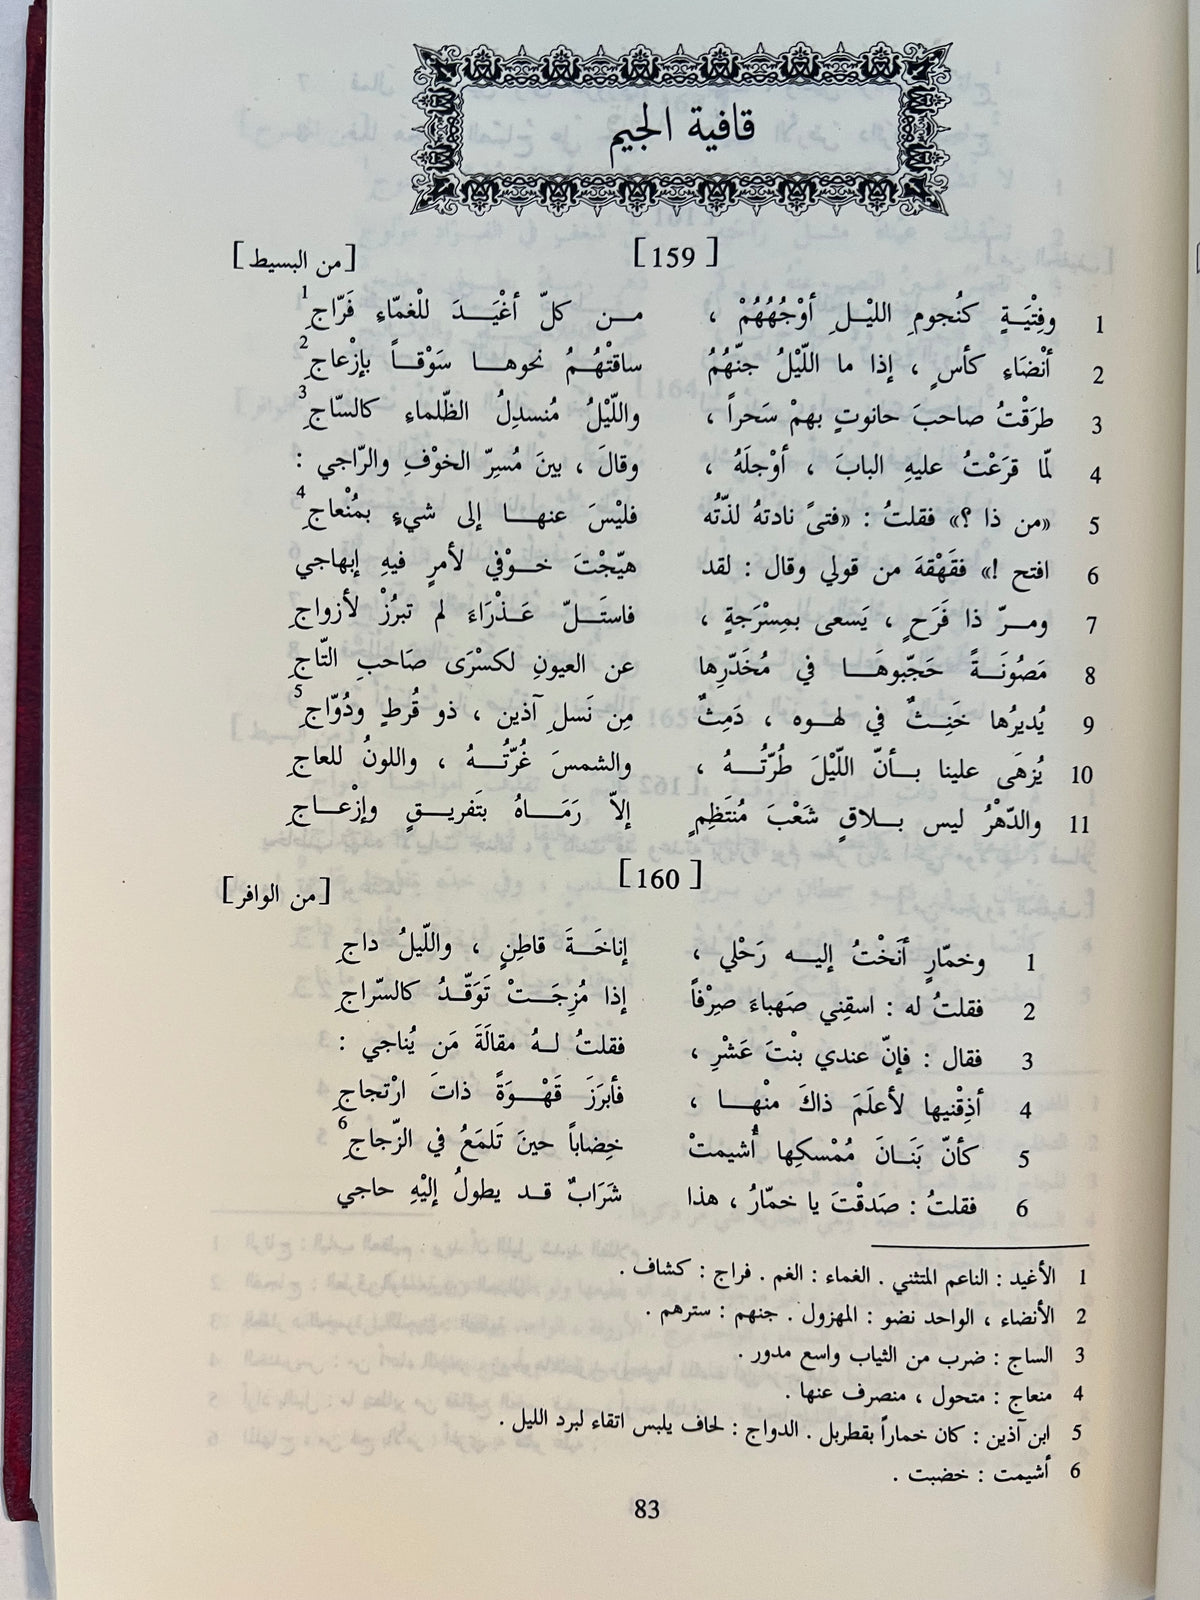 قافية الجيم
[ 159 ] [ من البسيط ]
1 وفِتْيَةٍ كنُجومِ الليلِ أوْجُهُهُمْ ، من كلّ أغْيَدَ للْغمّاءِ فَرّاجِ 1
2 أنْضَاءِ كأسٍ ، إذا ما اللّيْلُ جنّهُمُ ساقتْهُمُ نحوها سَوْقاً بإزْعاجِ 2
3 طرَقْتُ صاحبَ حانوتٍ بهمْ سَحراً ، واللّيْلُ مُنسدِلُ الظّلماءِ كالسّاجِ 3
4 لمّا قرَعْتُ عليهِ البابَ ، أوْجلَهُ ، وقالَ ، بينَ مُسِرّ الخوْفِ والرّاجي :
5 «من ذا ؟» فقلتُ : «فتىً نادتهُ لذّتُه فليْسَ عنها إلى شيءٍ بمُنْعاجِ 4
6 افتح !» فقَهْقهَ من قولي وقال : لقد هيّجْتَ خوْفي لأمرٍ فيهِ إبهاجي
7 ومرّ ذا فَرَحٍ ، يَسعى بمِسْرَجةٍ ، فاستَلّ عَذْرَاءَ لم تبرُزْ لأزواجِ
8 مَصُونَةً حَجّبوهَا في مُخَدّرِها عن العيونِ لكسْرَى صَاحبِ التّاجِ
9 يُديرُها خَنِثٌ في لهوه ، دَمِثٌ مِن نَسلِ آذين ، ذو قُرطٍ ودُوّاجِ 5
10 يُزهَى علينا بأنّ اللّيْلَ طُرّتُهُ ، والشمسَ غُرّتُهُ ، واللونُ للعاجِ
11 والدّهْرُ ليس بلاقٍ شَعْبَ مُنتَظِمٍ إلاّ رَمَاهُ بتَفريقٍ وإزْعاجِ
[ 160 ] [ من الوافر ]
1 وخمّارٍ أنَخْتُ إليه رَحْلي ، إناخَةَ قاطِنٍ ، واللّيلُ داجِ
2 فقلتُ له : اسقِني صَهباءَ صِرْفاً إذا مُزِجَتْ تَوَقّدُ كالسّراجِ
3 فقال : فإنّ عندي بنْتَ عَشْرِ ، فقلتُ لهُ مقالَةَ مَن يُناجي :
4 أذِقْنيها لأعلَمَ ذاكَ منْها ، فأبرَزَ قَهْوَةً ذاتَ ارْتجاجِ
5 كأنّ بَنَانَ مُمْسكِها أُشيمتْ خِضاباً حينَ تَلمَعُ في الزّجاجِ 6
6 فقلتُ : صَدقْتَ يا خمّارُ ، هذا شَرَابٌ قد يطولُ إليْهِ حاجي
1 الأغيد : الناعم المتثني . الغماء : الغم . فراج : كشاف .
2 الأنضاء ، الواحد نضو : المهزول . جنهم : سترهم .
3 الساج : ضرب من الثياب واسع مدور .
4 منعاج : متحول ، منصرف عنها .
5 ابن آذين : كان خماراً بقطربل . الدواج : لحاف يلبس اتقاء لبرد الليل .
6 أشيمت : خضبت .
83